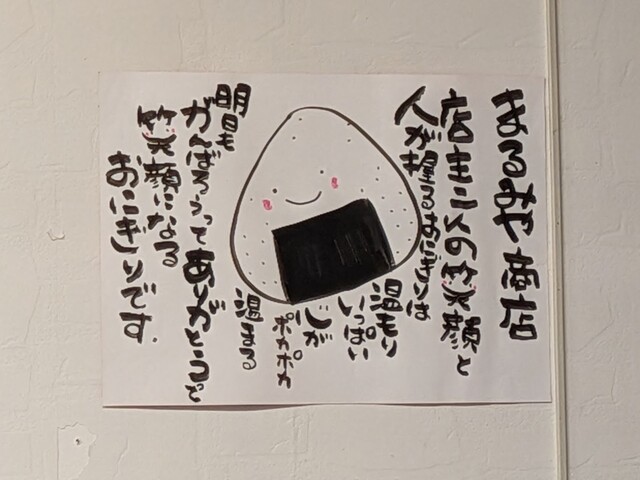 まるみや商店
店主二人の笑顔と
人が握るおにぎりは
温もり
いっぱい
心が
ポカポカ
温まる
明日も
がんばろうってありがとうって
笑顔になる
おにぎりです.